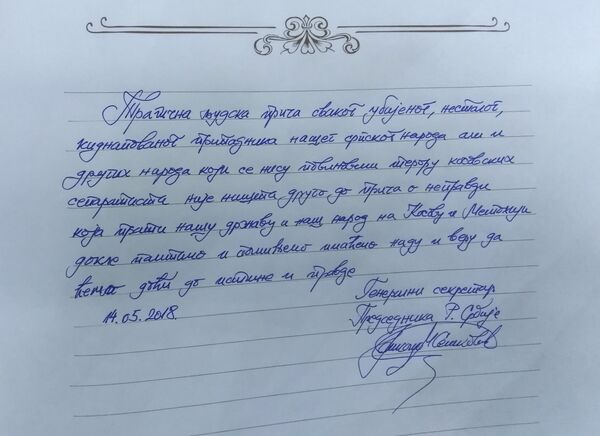 Трагична људска прича сваког убијеног, несталог,
киднапованог припадника нашег српског народа али и
других народа који се нису повиновали терору косовских
сепаратиста није ништа друго до прича о неправди
која прати нашу државу и наш народ на Косову и Метохији
докле памтимо и помињемо имаћемо наду и веру да
ћемо доћи до истине и правде
14.05.2018.
Генерални секретар
Председника Р. Србије